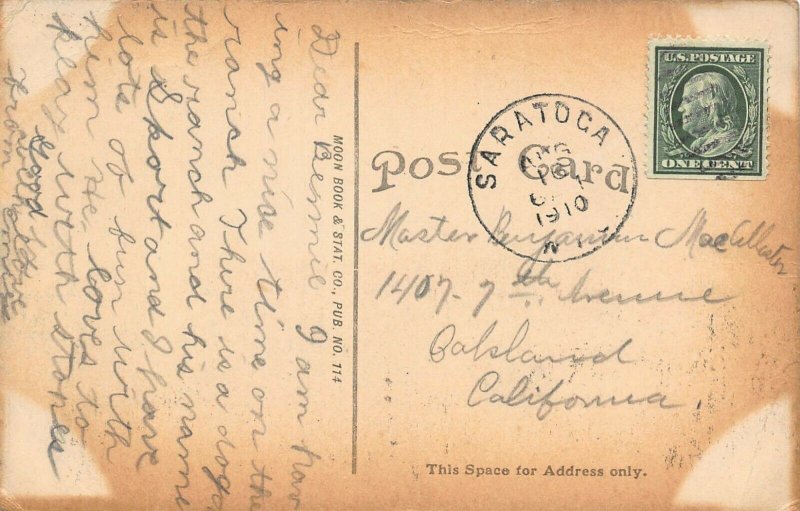 Dear Bennie I am hav
ing a nice time on the
ranch There is a dog on
the ranch and his name
is Sport and I have
lots of fun with
him He loves to
play with stones
Good
with love
from
MOON BOOK & STAT. CO., PUB. NO. 114
Post Card
SARATOGA
AUG
1910
U.S. POSTAGE
ONE CENT
Master Benjamin MacCallister
1407-7th Avenue
Oakland
California.
This Space for Address only.